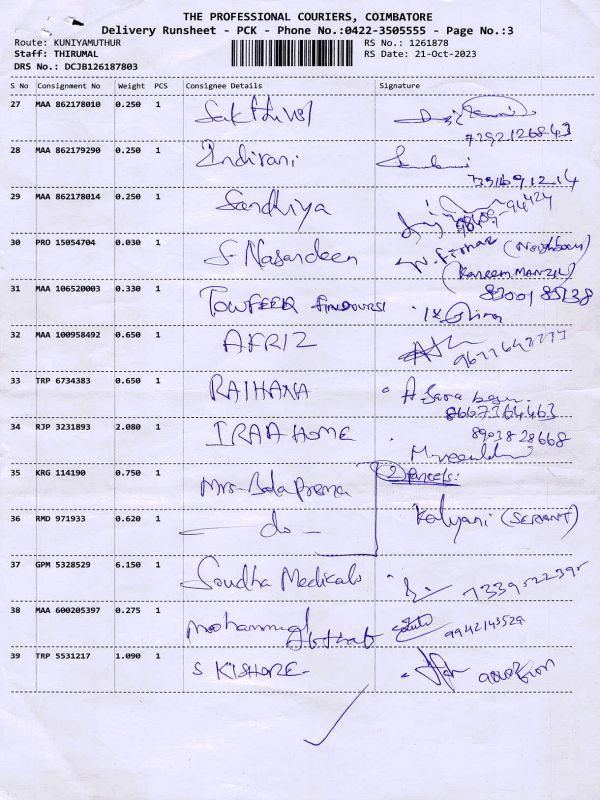 THE PROFESSIONAL COURIERS, COIMBATORE
Delivery Runsheet - PCK - Phone No.:0422-3505555 - Page No.:3
Route: KUNIYAMUTHUR RS No.: 1261878
Staff: THIRUMAL RS Date: 21-Oct-2023
DRS No.: DCJB126187803
S No Consignment No Weight PCS Consignee Details Signature
27 MAA 862178010 0.250 1 Sakthivel
7292126843
28 MAA 862179290 0.250 1 Indirani
7391691214
29 MAA 862178014 0.250 1 Sandhiya
30 PRO 15054704 0.030 1 S. Nasardeen (Neighbour)
(Kareem MANZIL)
31 MAA 106520003 0.330 1 TOWFEEK 8300185138
32 MAA 100958492 0.650 1 AFRIZ
33 TRP 6734383 0.650 1 RAIHANA A. Sara begum.
8667364463
34 RJP 3231893 2.080 1 IRAA HOME 8903828668
35 KRG 114190 0.750 1 Mrs. Bala Prema 2 Parcels:
36 RMD 971933 0.620 1 — do — Kalyani (SERVANT)
37 GPM 5328529 6.150 1 Soudha Medicals 7339522395
38 MAA 600205397 0.275 1 Mohammed 9942143529
39 TRP 5531217 1.090 1 S KISHORE